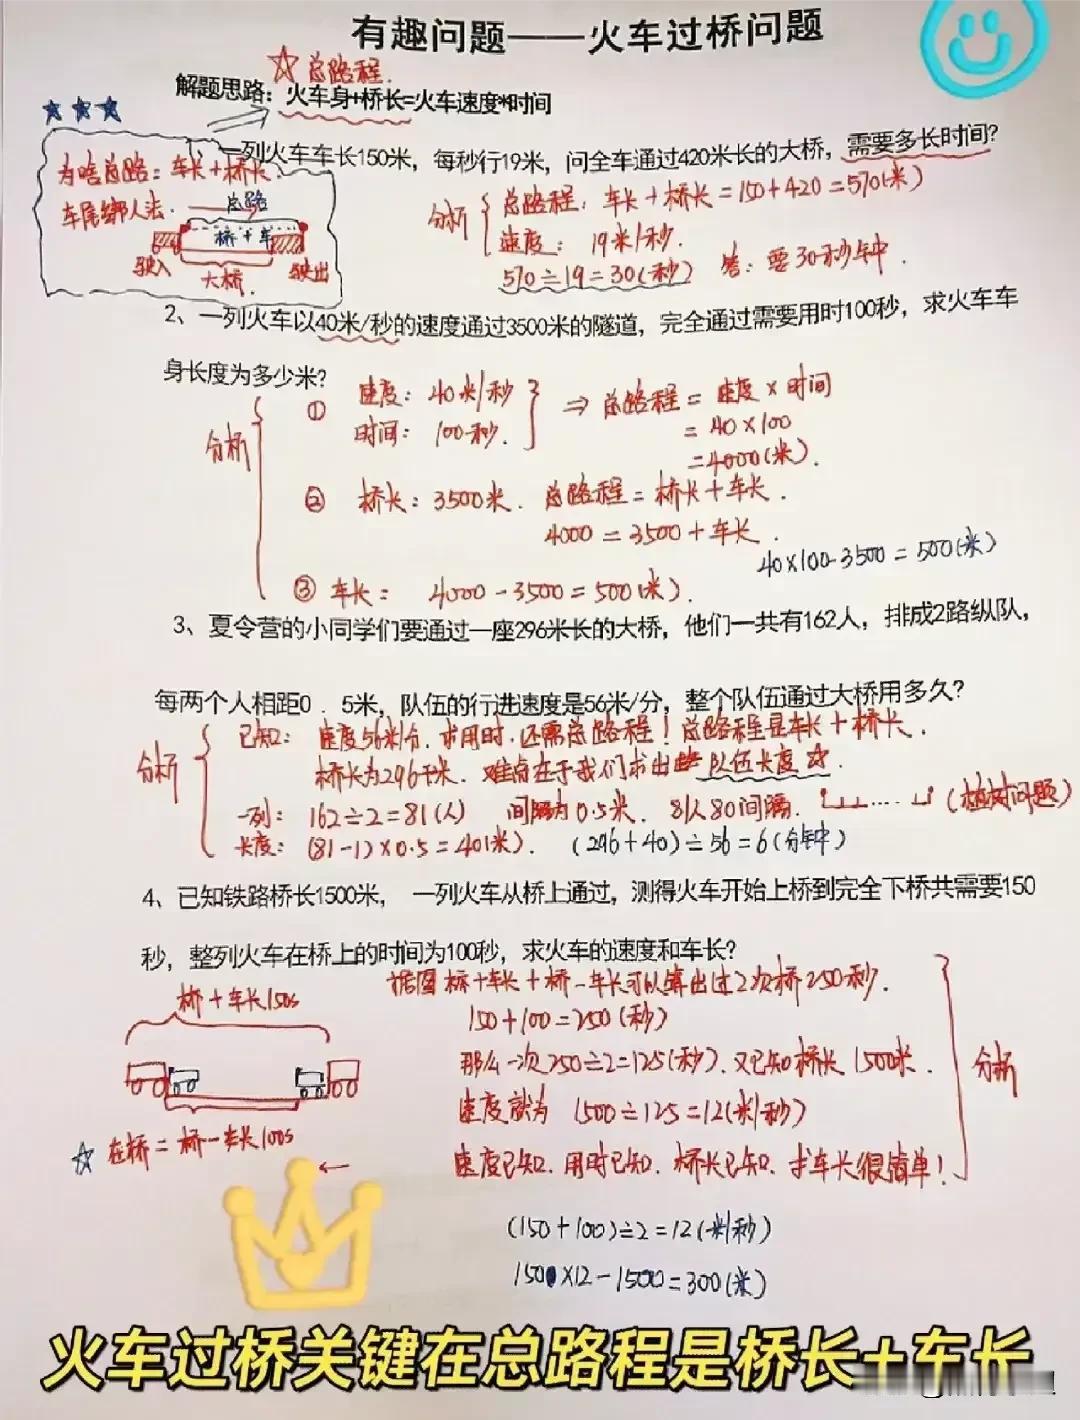 有趣问题——火车过桥问题
☆ 总路程.
解题思路：火车身+桥长=火车速度*时间
为啥总路：车长+桥长.
车尾绑人法.
总路
桥+车
驶入
大桥.
驶出
1、一列火车车长150米，每秒行19米，问全车通过420米长的大桥，需要多长时间?
分析
总路程：车长+桥长=150+420=570(米)
速度：19米/秒.
570÷19=30(秒) 答：要30秒钟.
2、一列火车以40米/秒的速度通过3500米的隧道，完全通过需要用时100秒，求火车车
身长度为多少米?
分析
① 速度：40米/秒
时间：100秒.
⇒ 总路程=速度×时间
=40×100
=4000(米).
② 桥长：3500米. 总路程=桥长+车长.
4000=3500+车长.
40×100-3500=500(米)
③ 车长： 4000-3500=500(米).
3、夏令营的小同学们要通过一座296米长的大桥，他们一共有162人，排成2路纵队，
每两个人相距0．5米，队伍的行进速度是56米/分，整个队伍通过大桥用多久?
分析
已知：速度56米/分.求用时.还需总路程！总路程是车长+桥长.
桥长为296千米.难点在于我们求出 队伍长度☆.
一列：162÷2=81(人) 间隔为0.5米. 81人80间隔. (植树问题)
长度：(81-1)×0.5=40(米). (296+40)÷56=6(分钟)
4、已知铁路桥长1500米， 一列火车从桥上通过，测得火车开始上桥到完全下桥共需要150
秒，整列火车在桥上的时间为100秒，求火车的速度和车长?
桥+车长150s
☆ 在桥=桥-车长100s
据图 桥+车长+桥-车长可以算出过2次桥250秒.
150+100=250(秒)
那么一次250÷2=125(秒).又已知桥长1500米.
速度就为 1500÷125=12(米/秒)
速度已知.用时已知.桥长已知.求车长很简单！
分析
(150+100)÷2=12(米/秒)
150×12-1500=300(米)
火车过桥关键在总路程是桥长+车长